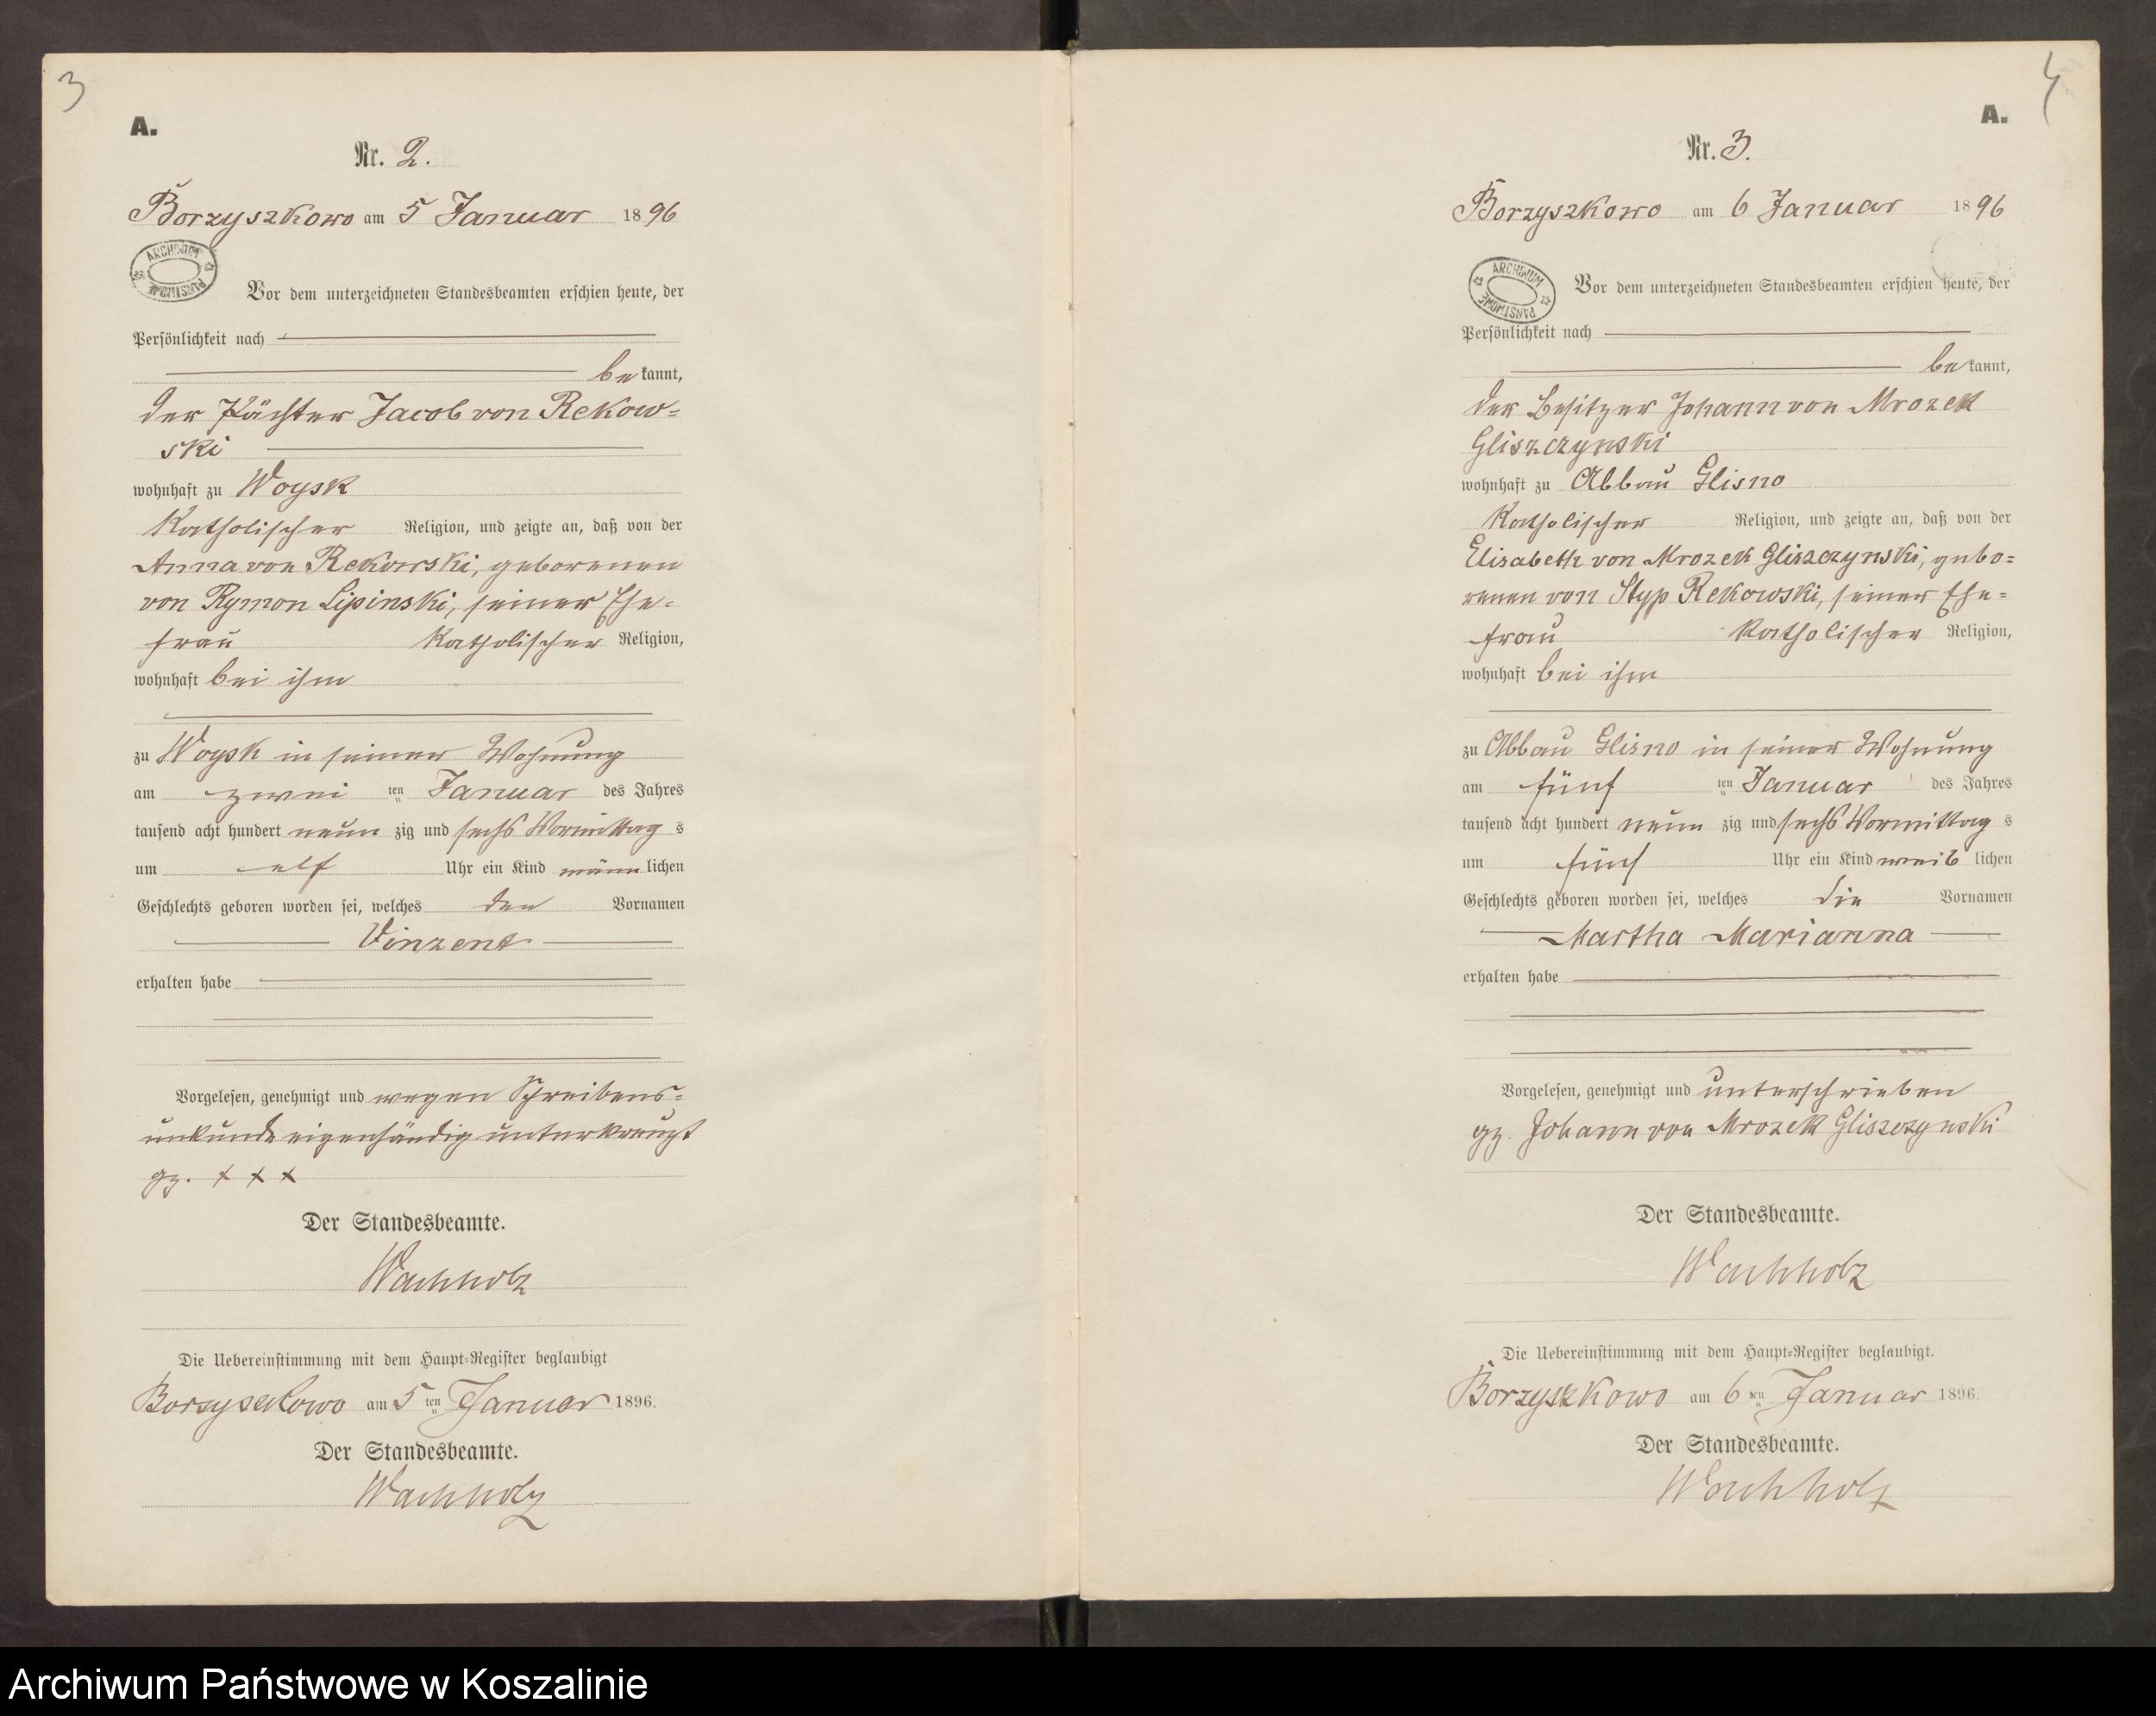 3
A.
Nr. 2.
Borzyszkowo am 5 Januar 1896
ARCHIWUM PAŃSTWOWE
Vor dem unterzeichneten Standesbeamten erschien heute, der
Persönlichkeit nach
bekannt,
der Pächter Jacob von Rekow=
ski
wohnhaft zu Woysk
katholischer Religion, und zeigte an, daß von der
Anna von Rekowski, geborenen
von Rymon Lipinski, seiner Ehe=
frau katholischer Religion,
wohnhaft bei ihm
zu Woysk in seiner Wohnung
am zwei ten Januar des Jahres
tausend acht hundert neun zig und sechs Vormittag s
um elf Uhr ein Kind männlichen
Geschlechts geboren worden sei, welches den Vornamen
Vinzent
erhalten habe
Vorgelesen, genehmigt und wegen Schreibens=
unkunde eigenhändig unterkreuzt
gz. + + +
Der Standesbeamte.
Wachholz
Die Uebereinstimmung mit dem Haupt=Register beglaubigt
Borzyszkowo am 5 ten Januar 1896.
Der Standesbeamte.
Wachholz
4
A.
Nr. 3.
Borzyszkowo am 6 Januar 1896
ARCHIWUM PAŃSTWOWE
Vor dem unterzeichneten Standesbeamten erschien heute, der
Persönlichkeit nach
bekannt,
der Besitzer Johann von Mrozek
Gliszczynski
wohnhaft zu Abbau Glisno
katholischer Religion, und zeigte an, daß von der
Elisabeth von Mrozek Gliszczynski, gebo=
renen von Styp Rekowski, seiner Ehe=
frau katholischer Religion,
wohnhaft bei ihm
zu Abbau Glisno in seiner Wohnung
am fünf ten Januar des Jahres
tausend acht hundert neun zig und sechs Vormittag s
um fünf Uhr ein Kind weib lichen
Geschlechts geboren worden sei, welches die Vornamen
Martha Marianna
erhalten habe
Vorgelesen, genehmigt und unterschrieben
gz. Johann von Mrozek Gliszczynski
Der Standesbeamte.
Wachholz
Die Uebereinstimmung mit dem Haupt=Register beglaubigt.
Borzyszkowo am 6 ten Januar 1896.
Der Standesbeamte.
Wachholz
Archiwum Państwowe w Koszalinie